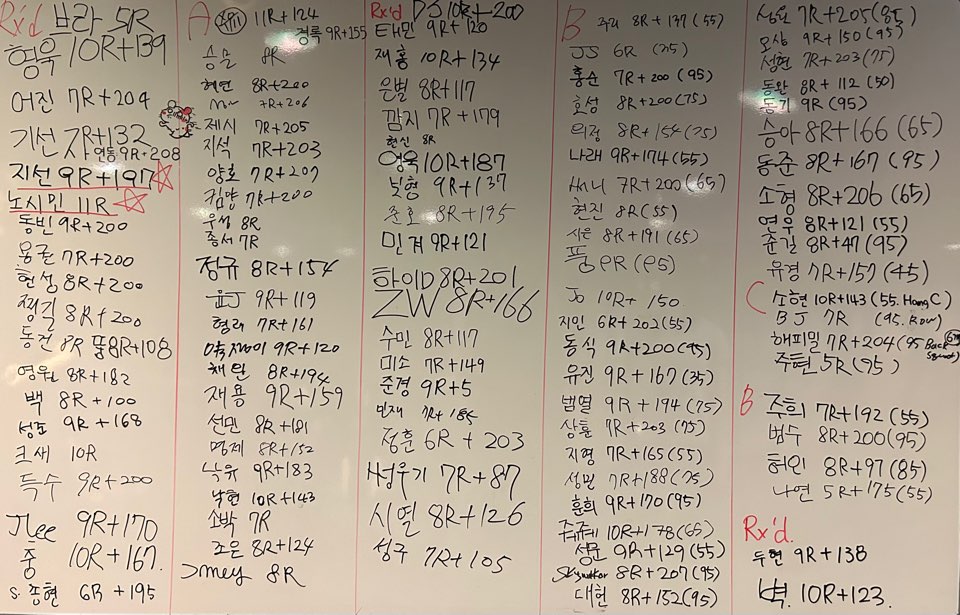 Rx'd 브라 5R
형욱 10R+139
어진 7R+204
기선 7R+132
연동 9R+208
지선 9R+197
노시민 11R
동빈 9R+200
용균 7R+200
헌성 8R+200
쨍길 8R+200
동건 8R 뚤8R+108
영우 8R+182
백 8R+100
성표 9R+168
크새 10R
득수 9R+200
JLee 9R+170
중 10R+167
S. 종현 6R+195
A XIII 11R+124
경륵 9R+155
승물 8R
혜연 8R+200
7R+206
제시 7R+205
지석 7R+203
양호 7R+207
김양 7R+200
우성 8R
종서 7R
정규 8R+154
윤J 9R+119
형래 7R+161
9R+120
채완 8R+194
재용 9R+159
선민 8R+181
명제 8R+152
낙유 9R+183
남현 10R+143
소박 7R
조은 8R+124
Jmey 8R
Rx'd DJ 10R+200
태민 9R+120
재홍 10R+134
은별 8R+117
깜지 7R+179
현신 8R
영욱 10R+187
빛형 9R+137
윤호 8R+195
민겨 9R+121
하이D 8R+201
ZW 8R+166
수민 8R+117
미소 7R+149
준경 9R+5
민재 7R+185
정훈 6R+203
성우기 7R+87
시열 8R+126
성구 7R+105
B 주리 8R+137 (55)
JS 6R (35)
홍순 7R+200 (95)
효성 8R+200 (75)
의정 8R+154 (75)
나래 9R+174 (55)
써니 7R+200 (65)
현진 8R (55)
시은 8R+191 (65)
품 9R (95)
Jo 10R+150
지인 6R+202 (55)
동식 9R+200 (95)
유진 9R+167 (35)
범열 9R+194 (75)
상훈 7R+203 (75)
지영 7R+165 (55)
성민 7R+188 (75)
훈희 9R+170 (95)
주쥬 10R+178 (65)
성문 9R+129 (55)
Skywalker 8R+207 (95)
대현 8R+152 (95)
7R+205 (85)
오상 9R+150 (95)
성현 7R+203 (75)
동완 8R+112 (50)
동기 9R (95)
승아 8R+166 (65)
동준 8R+167 (95)
소형 8R+206 (65)
연우 8R+121 (55)
준길 8R+47 (95)
유경 7R+157 (45)
C 소현 10R+143 (55. Hang C)
BJ 7R (95. Row)
해피밀 7R+204 (95 Back squat)
주현 5R (95)
B 주희 7R+192 (55)
범수 8R+200 (95)
허인 8R+97 (85)
나연 5R+175 (55)
Rx'd.
두현 9R+138
벽 10R+123